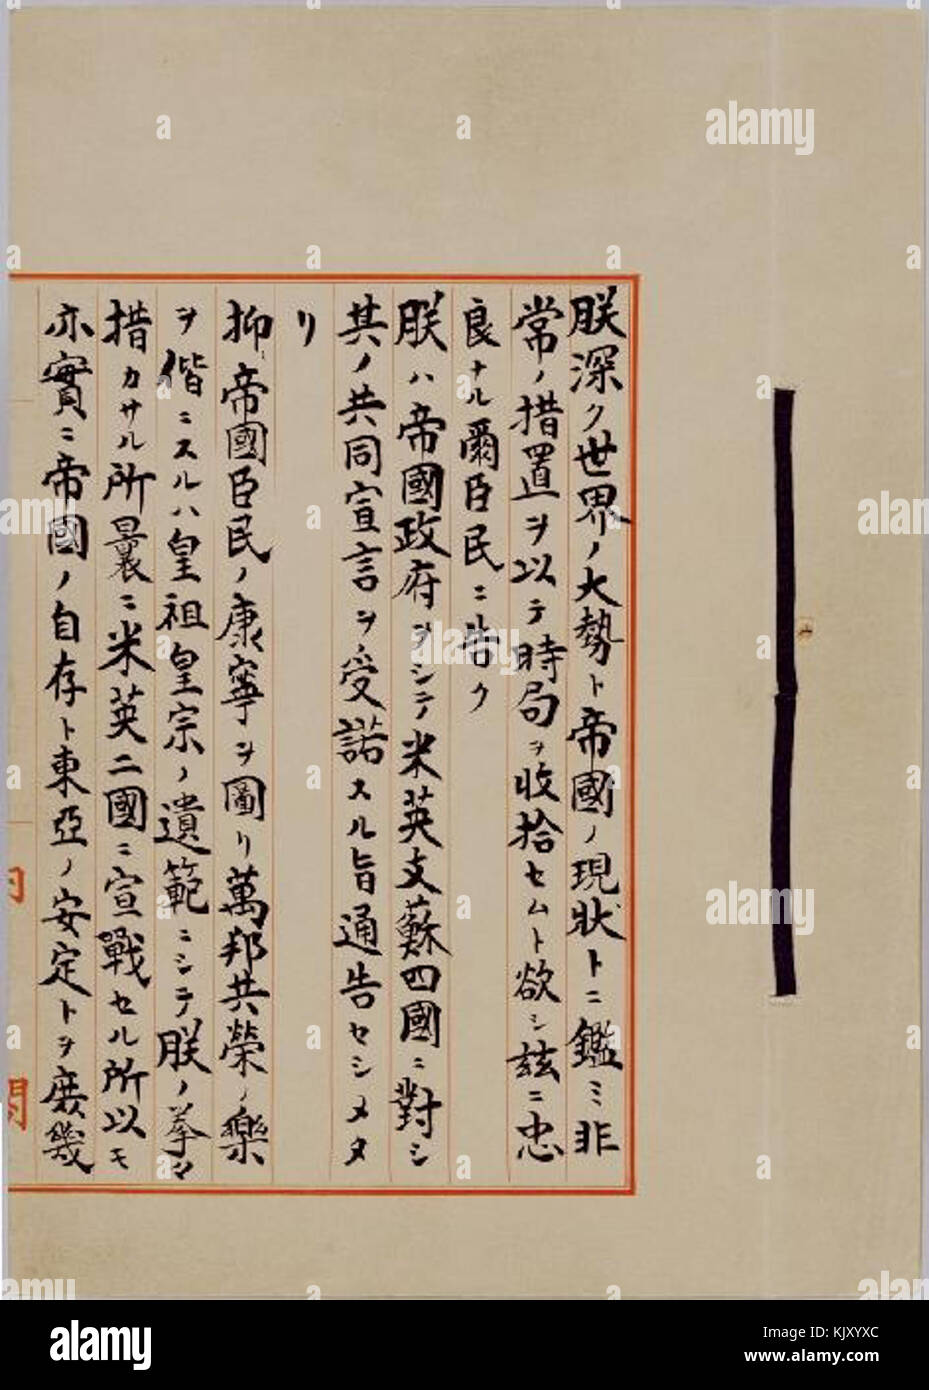 朕深ク世界ノ大勢ト帝國ノ現狀トニ鑑ミ非
常ノ措置ヲ以テ時局ヲ收拾セムト欲シ玆ニ忠
良ナル爾臣民ニ告ク
朕ハ帝國政府ヲシテ米英支蘇四國ニ對シ
其ノ共同宣言ヲ受諾スル旨通告セシメタ
リ
抑帝國臣民ノ康寧ヲ圖リ萬邦共榮ノ樂
ヲ偕ニスルハ皇祖皇宗ノ遺範ニシテ朕ノ拳々
措カサル所曩ニ米英二國ニ宣戰セル所以モ
亦實ニ帝國ノ自存ト東亞ノ安定トヲ庻幾
内
閣
a alamy
alamy stock photo
KJXYXC
www.alamy.com